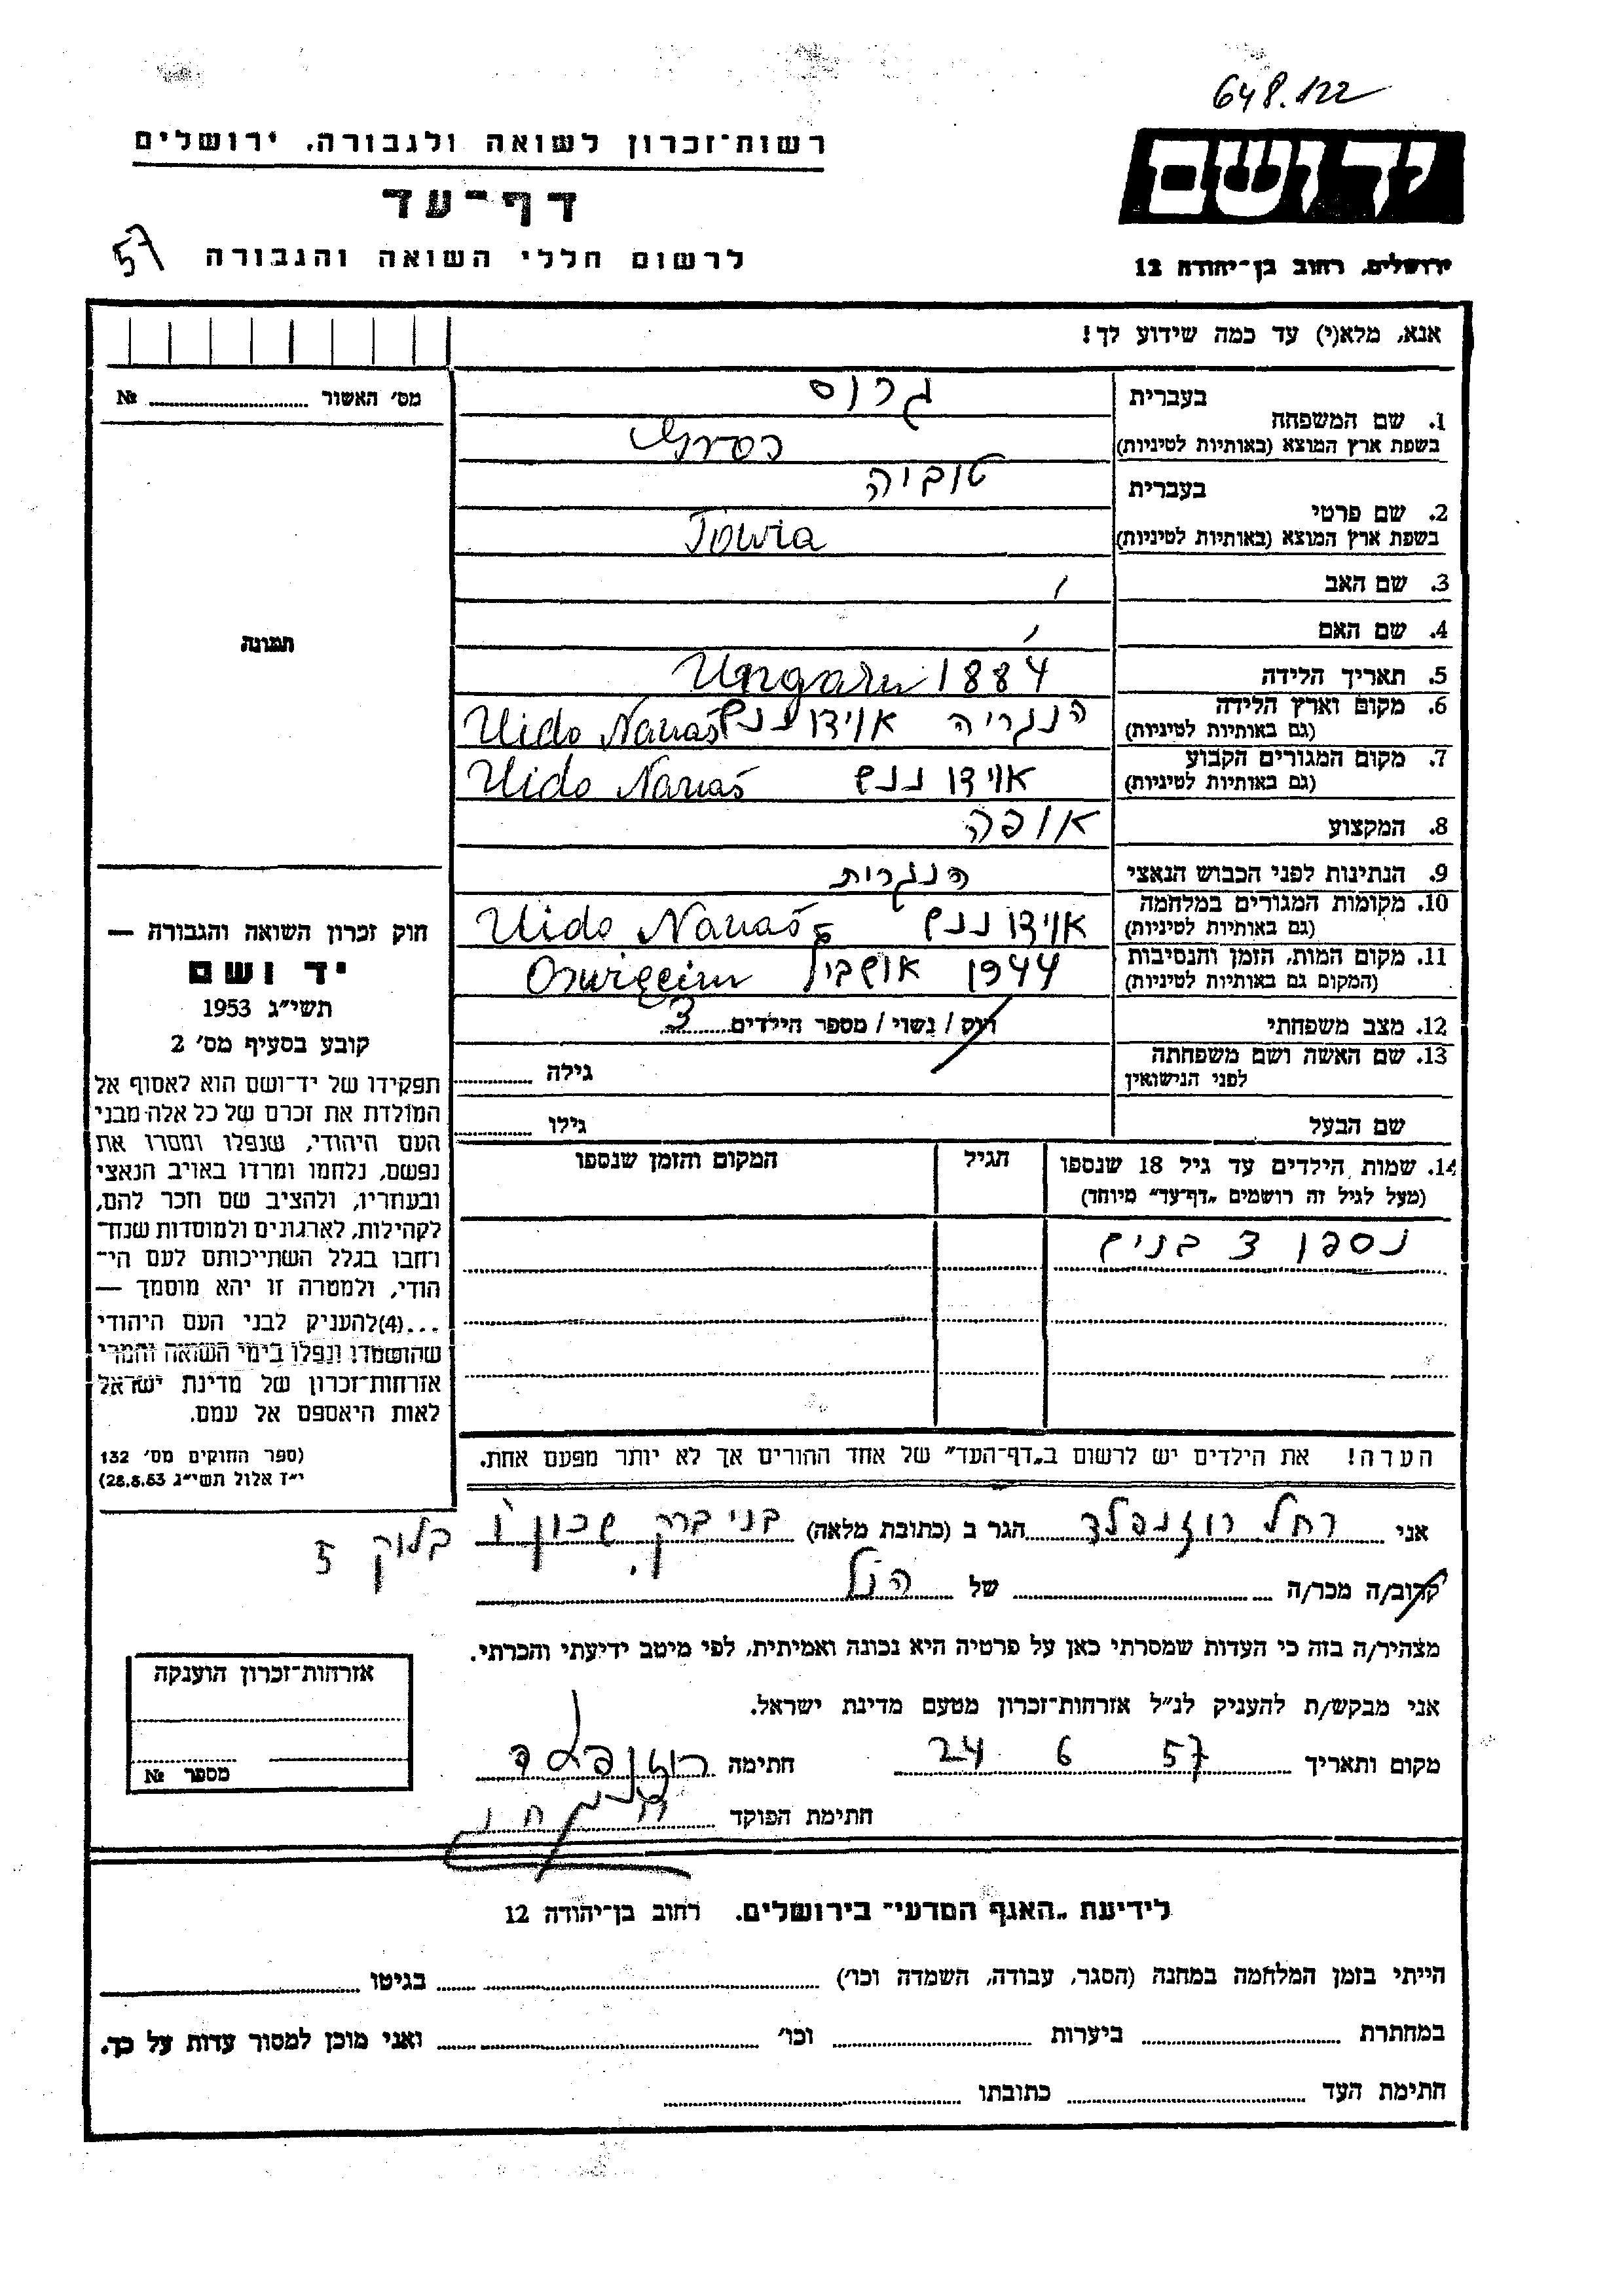 648.122
יד ושם
ירושלים, רחוב בן־יהודה 12
רשות־זכרון לשואה ולגבורה, ירושלים
דף־עד
לרשום חללי השואה והגבורה
57
אנא, מלא(י) עד כמה שידוע לך!
מס׳ האשור № 
תמונה
1. שם המשפחה בעברית גרוס
בשפת ארץ המוצא (באותיות לטיניות) Gros
2. שם פרטי בעברית טוביה
בשפת ארץ המוצא (באותיות לטיניות) Towia
3. שם האב
4. שם האם
5. תאריך הלידה Ungarn 1884
6. מקום וארץ הלידה (גם באותיות לטיניות) הנגריה אוידו ננש Uido Nanaš
7. מקום המגורים הקבוע (גם באותיות לטיניות) אוידו ננש Uido Nanaš
8. המקצוע אופה
9. הנתינות לפני הכבוש הנאצי הנגרית
10. מקומות המגורים במלחמה (גם באותיות לטיניות) אוידו ננש Uido Nanaš
11. מקום המות, הזמן והנסיבות (המקום גם באותיות לטיניות) 1944 Oswięcim
12. מצב משפחתי רוק / נשוי / מספר הילדים 3
13. שם האשה ושם משפחתה לפני הנישואין גילה
שם הבעל גילו
14. שמות הילדים עד גיל 18 שנספו הגיל המקום והזמן שנספו
(מעל לגיל זה רושמים „דף־עד” מיוחד)
נספו 3 בנים
הערה! את הילדים יש לרשום ב„דף־העד” של אחד ההורים אך לא יותר מפעם אחת.
חוק זכרון השואה והגבורה —
יד ושם
תשי״ג 1953
קובע בסעיף מס׳ 2
תפקידו של יד־ושם הוא לאסוף אל
המולדת את זכרם של כל אלה מבני
העם היהודי, שנפלו ומסרו את
נפשם, נלחמו ומרדו באויב הנאצי
ובעוזריו, ולהציב שם וזכר להם,
לקהילות, לארגונים ולמוסדות שנח־
רחבו בגלל השתייכותם לעם הי־
הודי, ולמטרה זו יהא מוסמך —
...(4)להעניק לבני העם היהודי
שהושמדו ונפלו בימי השואה והמרי
אזרחות־זכרון של מדינת ישראל
לאות היאספם אל עמם.
(ספר החוקים מס׳ 132
י״ד אלול תשי״ג 28.8.53)
אני רחל רוזנפלד הגר ב (כתובת מלאה) בני ברק, שכון ו׳ בלוק 5
קרוב/ה מכר/ה של הנ״ל
מצהיר/ה בזה כי העדות שמסרתי כאן על פרטיה היא נכונה ואמיתית, לפי מיטב ידיעתי והכרתי.
אני מבקש/ת להעניק לנ״ל אזרחות־זכרון מטעם מדינת ישראל.
מקום ותאריך 24 6 57 חתימה רוזנפלד
חתימת הפוקד
אזרחות־זכרון הוענקה
מספר №
לידיעת „האגף המדעי” בירושלים. רחוב בן־יהודה 12
הייתי בזמן המלחמה במחנה (הסגר, עבודה, השמדה וכו׳) בגיטו
במחתרת ביערות וכו׳ ואני מוכן למסור עדות על כך.
חתימת העד כתובתו